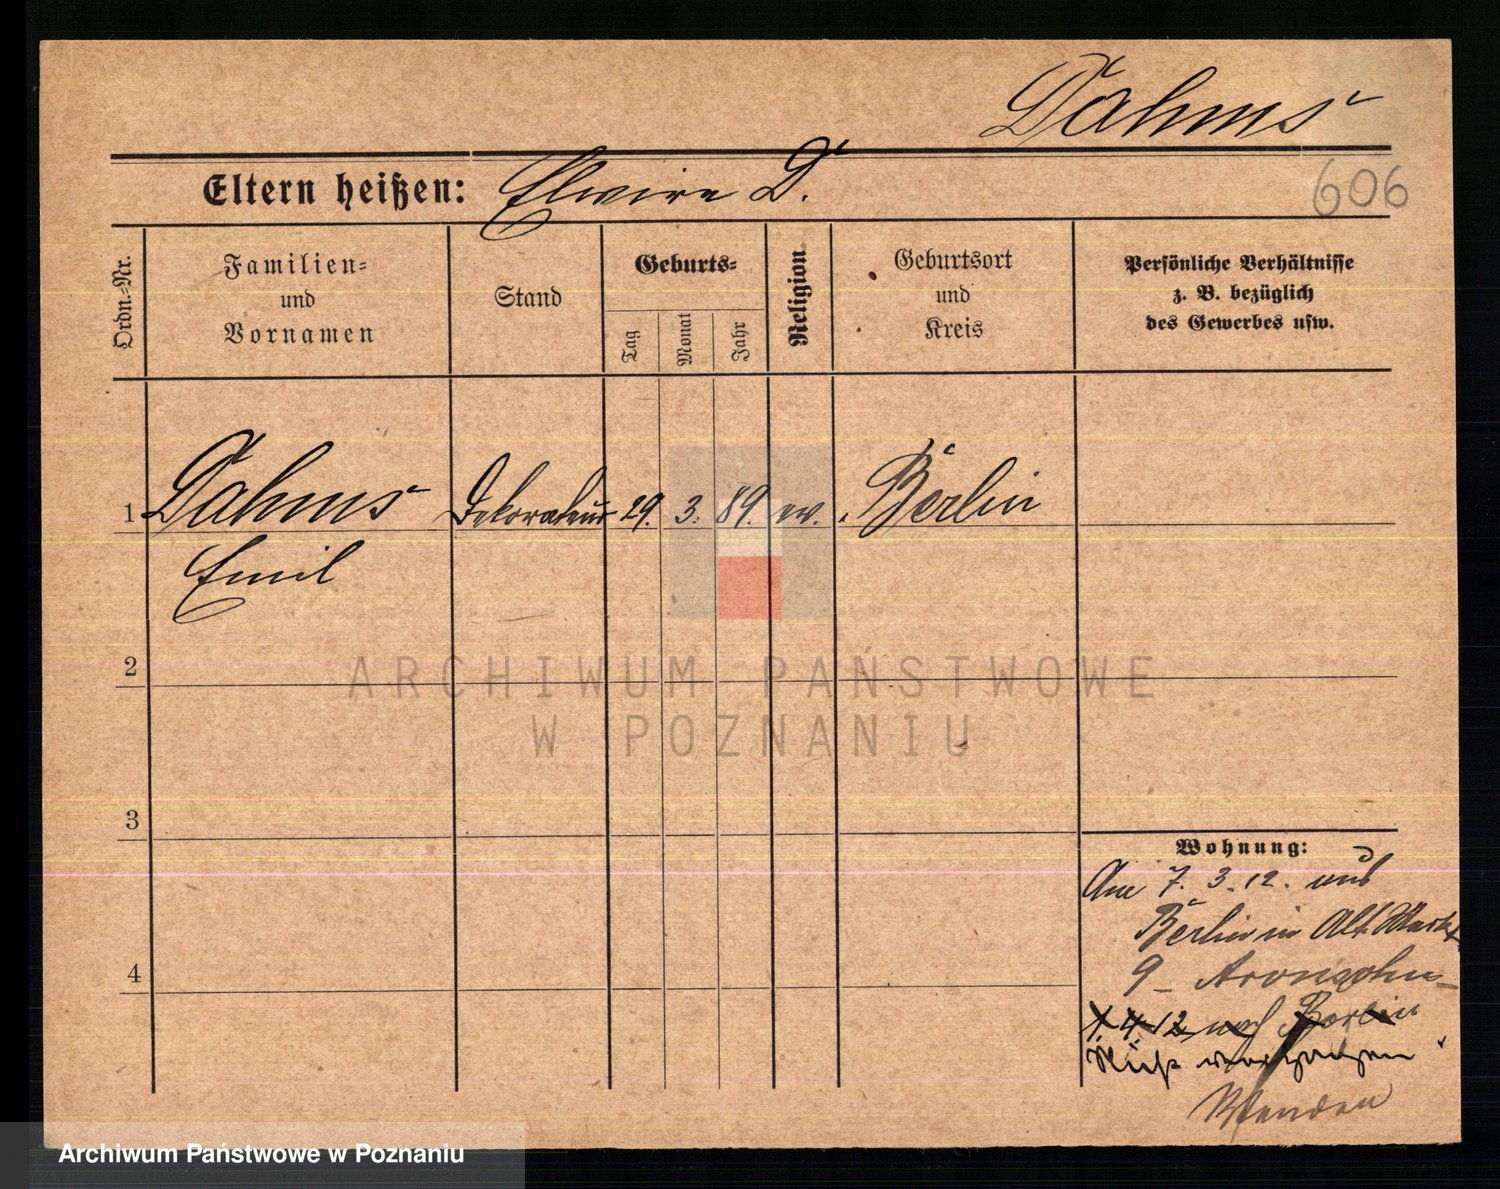 Dahms
Eltern heißen: Elwire D.
606
Ordn.-Nr.
Familien-
und
Vornamen
Stand
Geburts-
Tag
Monat
Jahr
Religion
Geburtsort
und
Kreis
Persönliche Verhältnisse
z. B. bezüglich
des Gewerbes usw.
1 Dahms Dekorateur 29. 3. 89. ev. Berlin
Emil
2
3
4
Wohnung:
Am 7. 3. 12. aus
Berlin in Alt. Markt
9 - Aronsohn
1. 4. 12. nach Berlin
verzogen
Wenden
ARCHIWUM PAŃSTWOWE
W POZNANIU
Archiwum Państwowe w Poznaniu